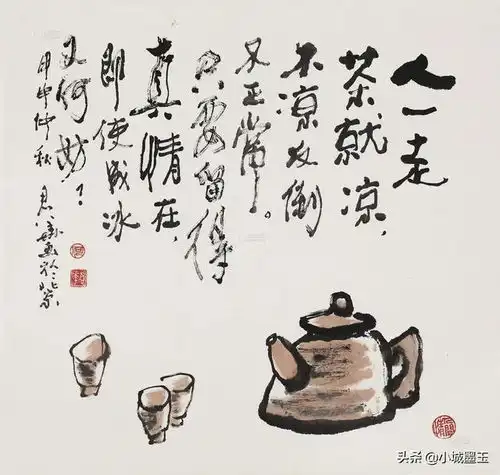 人一走
茶就凉,
不凉反倒
不正常。
只要留得
真情在,
即使成冰
又何妨!
甲申仲秋
头条@小城墨玉